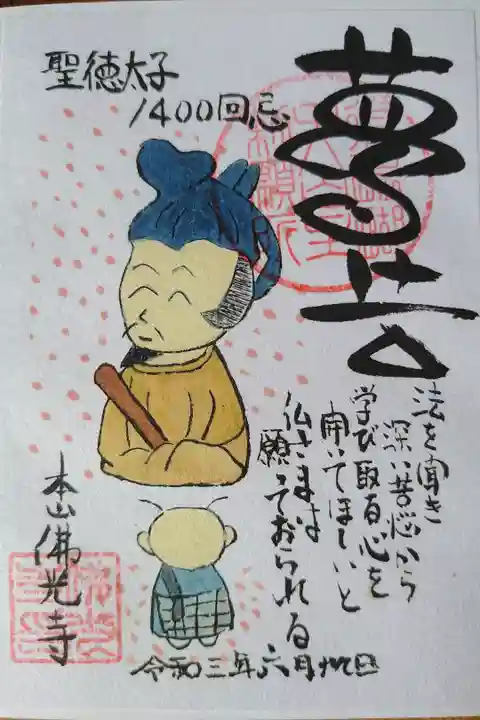 聖徳太子
1400回忌
夢告
法を聞き
深い苦悩から
学び取る心を
開いてほしいと
仏さまは
願っておられる
本山佛光寺
令和三年六月